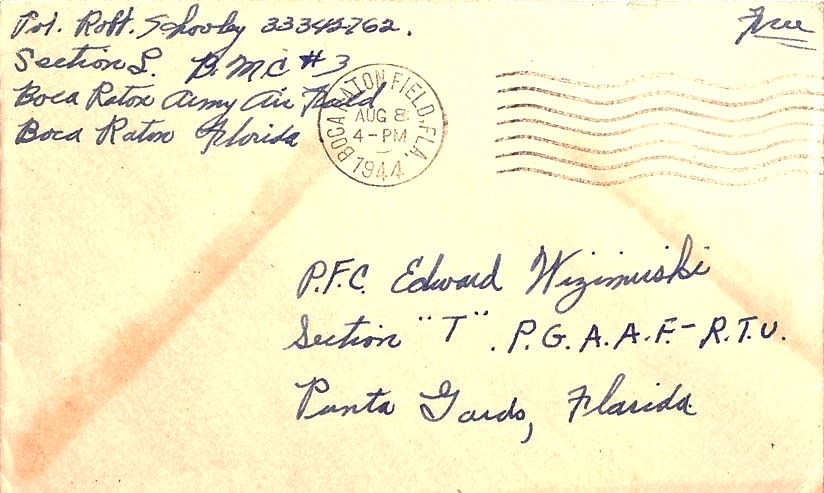 Pvt. Robt. Schooley 33342762.
Free
Section L. B.M.C #3
Boca Raton Army Air Field
Boca Raton Florida
BOCA RATON FIELD, FLA.
AUG 8
4-PM
1944
P.F.C. Edward
Section "T". P.G.A.A.F.-R.T.U.
Punta Gorda, Florida